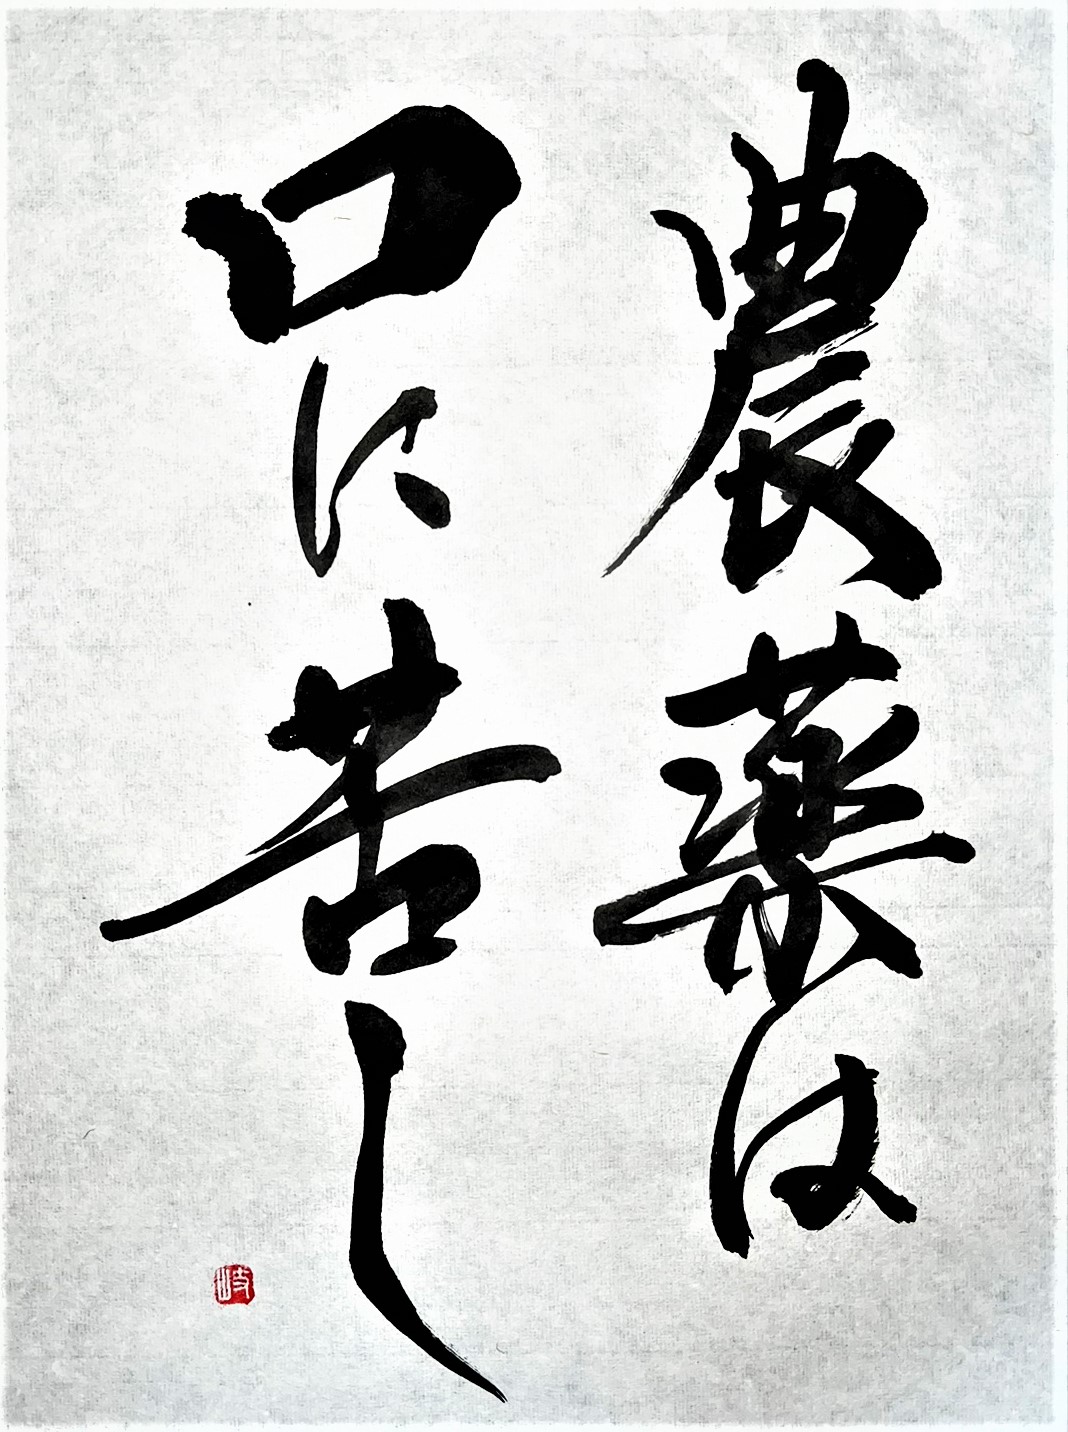 農薬は
口に苦し
岐